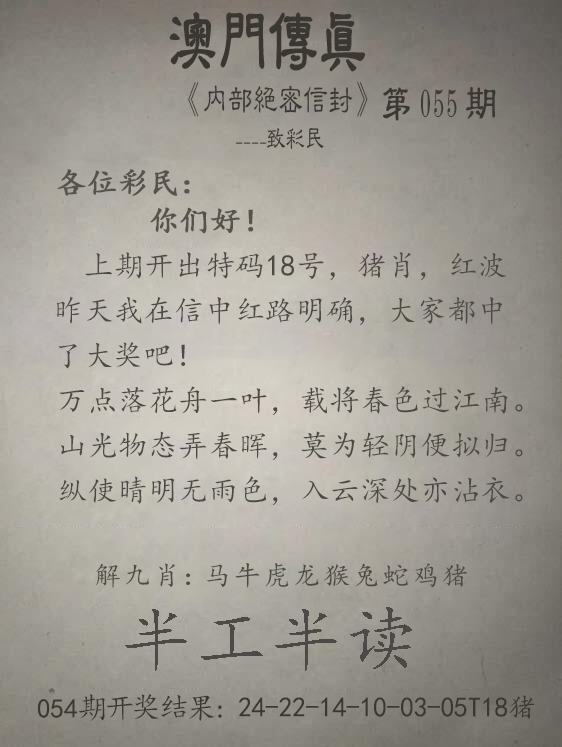 澳門傳眞
《内部絕密信封》第055期
----致彩民
各位彩民：
你们好！
上期开出特码18号，猪肖，红波
昨天我在信中红路明确，大家都中
了大奖吧！
万点落花舟一叶，载将春色过江南。
山光物态弄春晖，莫为轻阴便拟归。
纵使晴明无雨色，入云深处亦沾衣。
解九肖：马牛虎龙猴兔蛇鸡猪
半工半读
054期开奖结果：24-22-14-10-03-05T18猪